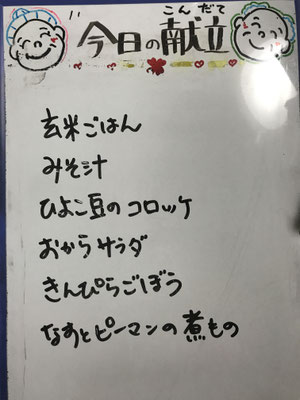 こん だて
今日の献立
玄米ごはん
みそ汁
ひよこ豆のコロッケ
おからサラダ
きんぴらごぼう
なすとピーマンの煮もの